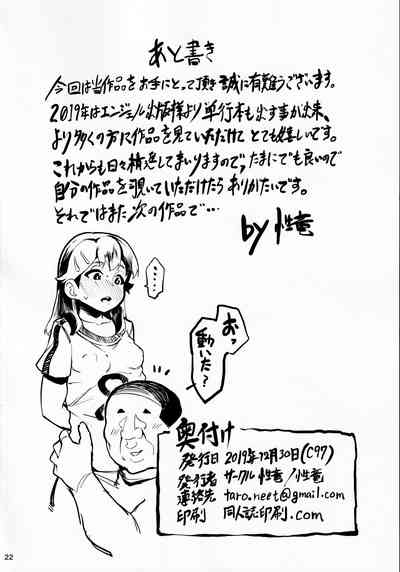 あと書き
今回は当作品をお手にとって頂き誠に有難うございます。
2019年はエンジェル出版様より単行本も出す事が出来、
より多くの方に作品を見ていただけてとても嬉しいです。
これからも日々精進してまいりますので、たまにでも良いので
自分の作品を覗いていただけたらありがたいです。
それではまた次の作品で…
by 性竜
……
おっ
動いた?
奥付け
発行日 2019年12月30日(C97)
発行者 サークル性竜/性竜
連絡先 taro.neet@gmail.com
印刷 同人誌印刷.com
22